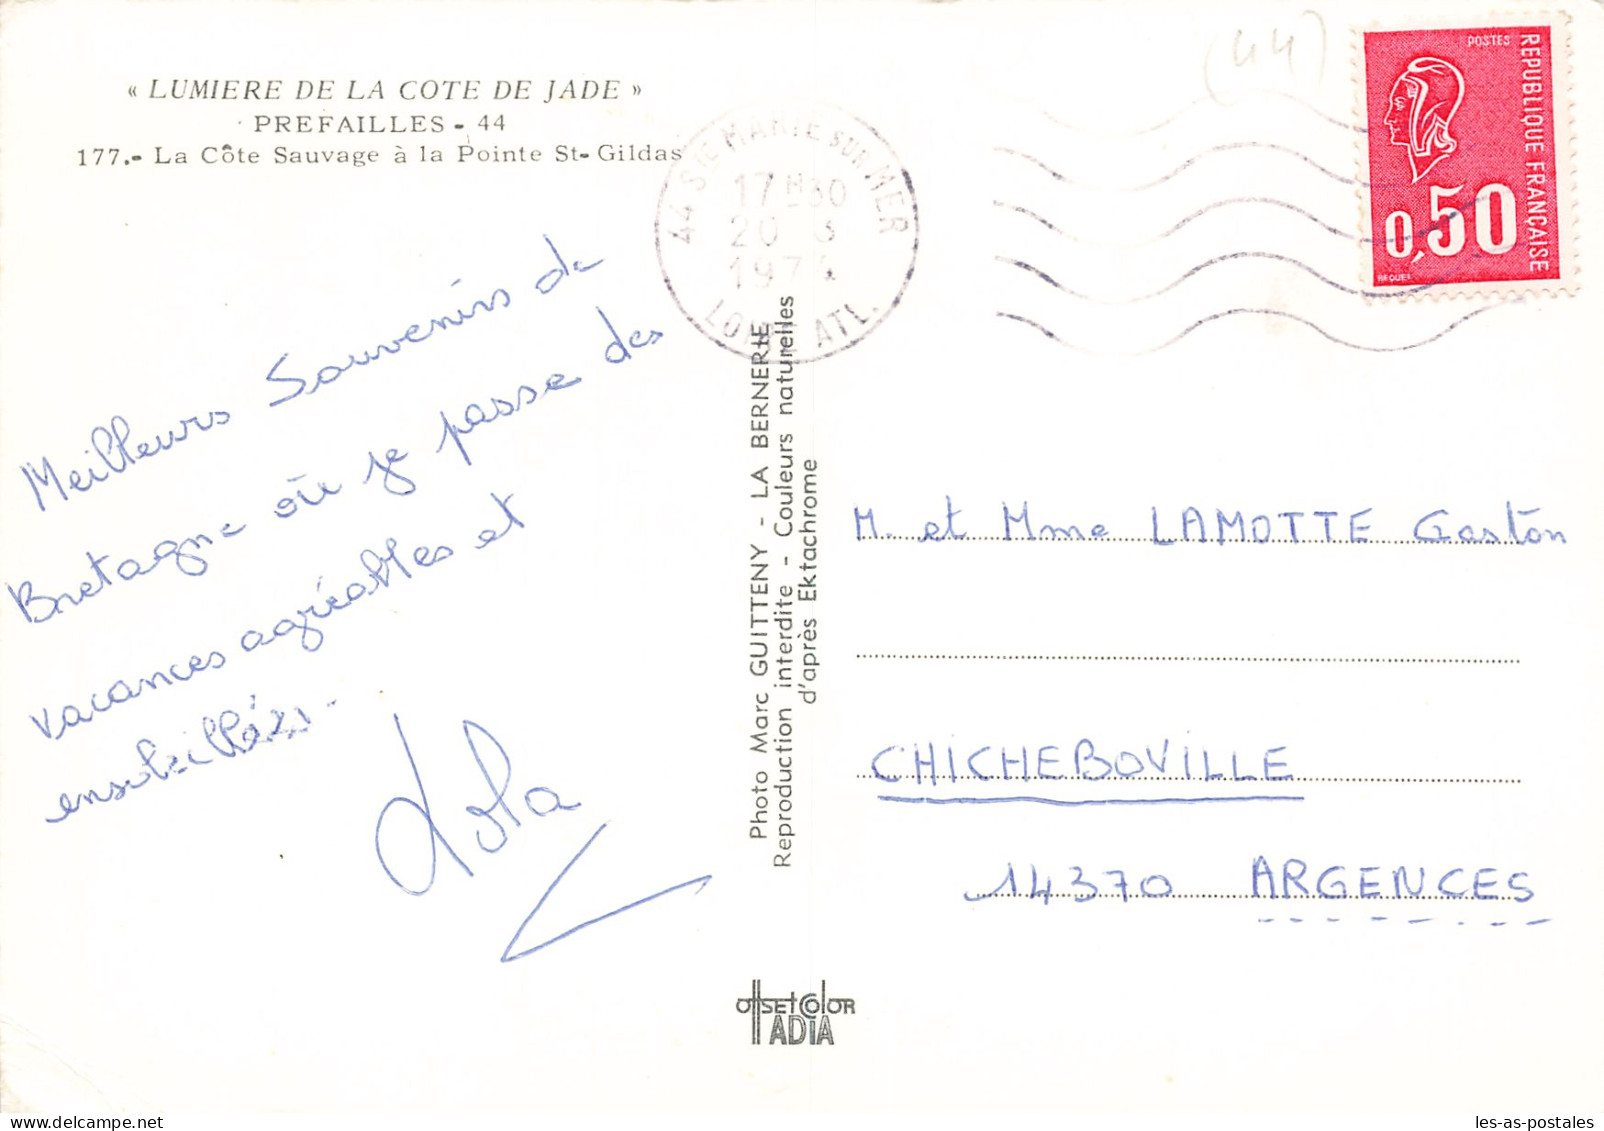 « LUMIERE DE LA COTE DE JADE »
PREFAILLES - 44
177.- La Côte Sauvage à la Pointe St-Gildas
Meilleurs Souvenirs de
Bretagne où je passe des
vacances agréables et
ensoleillées.
Lola
Photo Marc GUITTENY - LA BERNERIE
Reproduction interdite - Couleurs naturelles
d'après Ektachrome
offset color
ADIA
44 STE MARIE SUR MER
17H30
20 3
1974
LOIRE ATL.
(44)
POSTES
REPUBLIQUE FRANÇAISE
0,50
BEQUET
M. et Mme LAMOTTE Gaston
CHICHEBOVILLE
14370 ARGENCES
les-as-postales